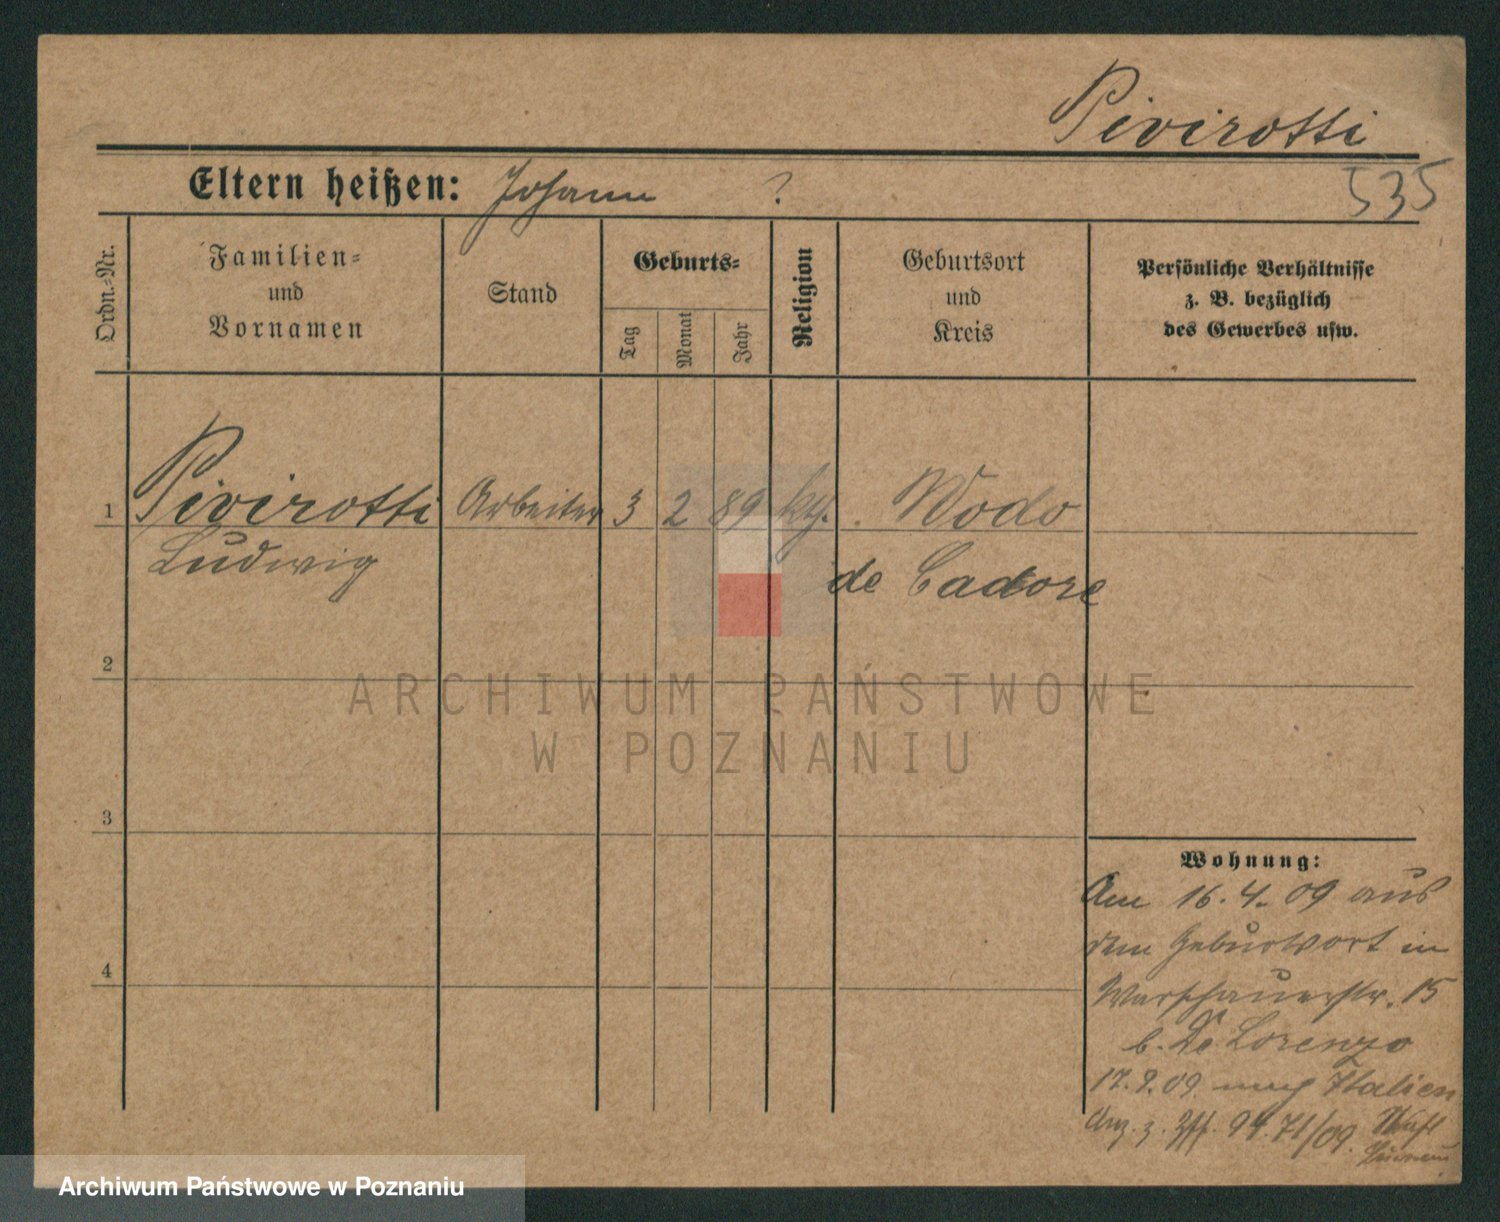 Pivirotti
Eltern heißen: Johann ?
535
Ordn.-Nr.
Familien-
und
Vornamen
Stand
Geburts-
Tag
Monat
Jahr
Religion
Geburtsort
und
Kreis
Persönliche Verhältnisse
z. B. bezüglich
des Gewerbes usw.
1 Pivirotti Arbeiter 3 2 89 kth. Wodo
Ludwig de Cadore
2
3
4
ARCHIWUM PAŃSTWOWE
W POZNANIU
Wohnung:
Am 16.4.09 aus
dem Geburtsort in
Warschauerstr. 15
b. De Lorenzo
17.9.09. nach Italien
Archiwum Państwowe w Poznaniu